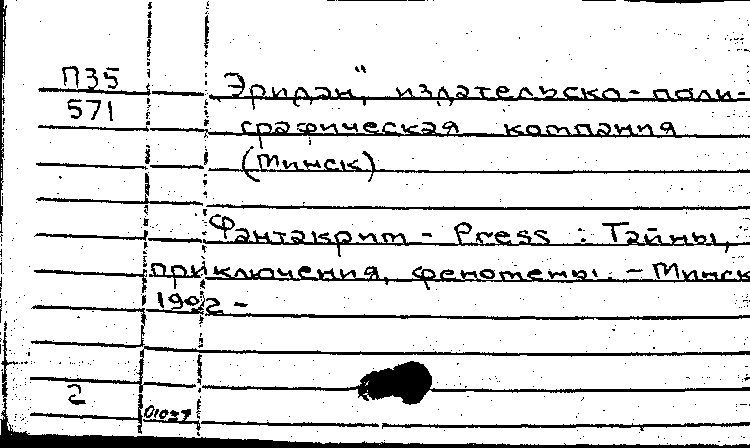 П35
571
Эридан", издательско-поли-
графическая компания
(Минск)
Фантакрим - Press : Тайны,
приключения, феномены. - Минск
1992 -
2
01037